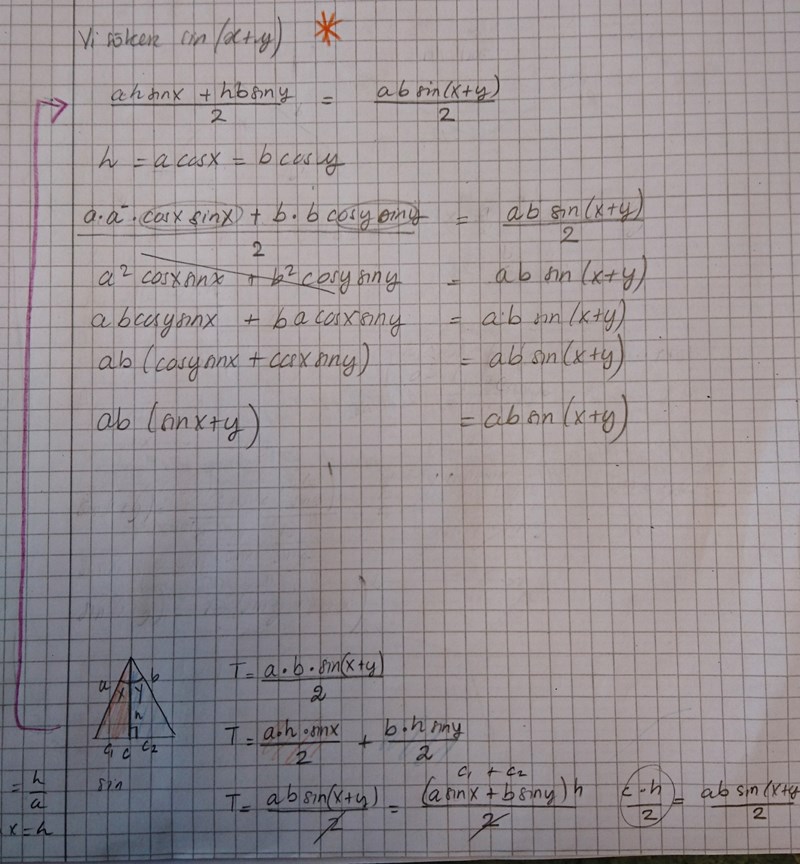 Vi söker sin(x+y) *
(ah sinx + hb siny)/2 = (ab sin(x+y))/2
h = a cosx = b cosy
(a·a·cosx sinx + b·b cosy siny)/2 = (ab sin(x+y))/2
a² cosx sinx + b² cosy siny = ab sin(x+y)
ab cosy sinx + ba cosx siny = ab sin(x+y)
ab (cosy sinx + cosx siny) = ab sin(x+y)
ab (sinx+y) = ab sin(x+y)
a x y b
h
c₁ c c₂
T = (a·b·sin(x+y))/2
T = (a·h·sinx)/2 + (b·h siny)/2
c₁ + c₂
T = (ab sin(x+y))/2 = ((a sinx + b siny) h)/2 (c·h)/2 = (ab sin(x+y))/2
= h/a sin
x = h